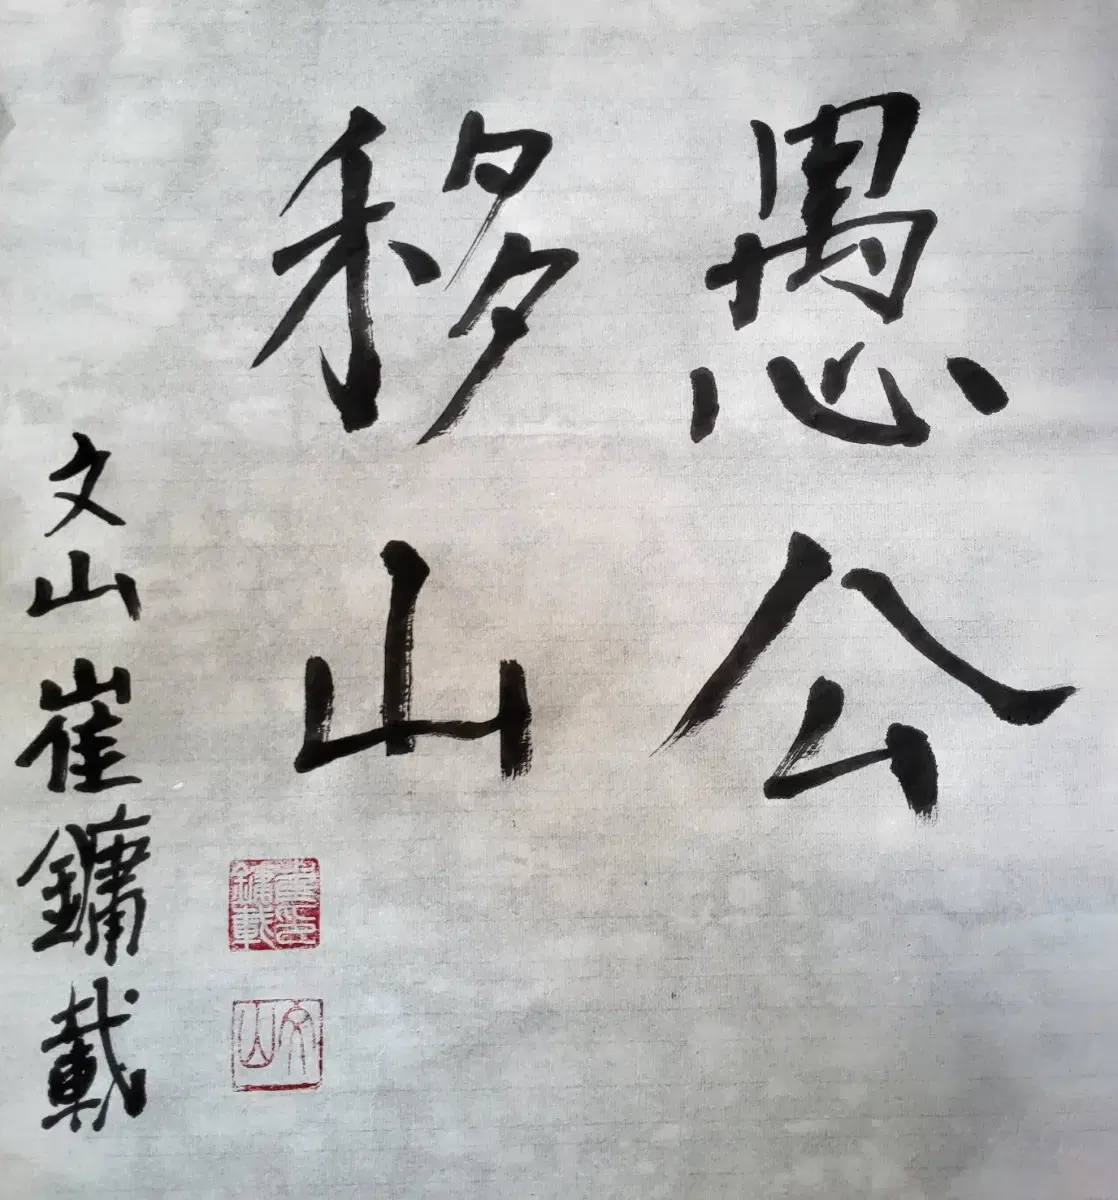 愚公
移山
文山 崔鏞載
崔鏞載印
文山